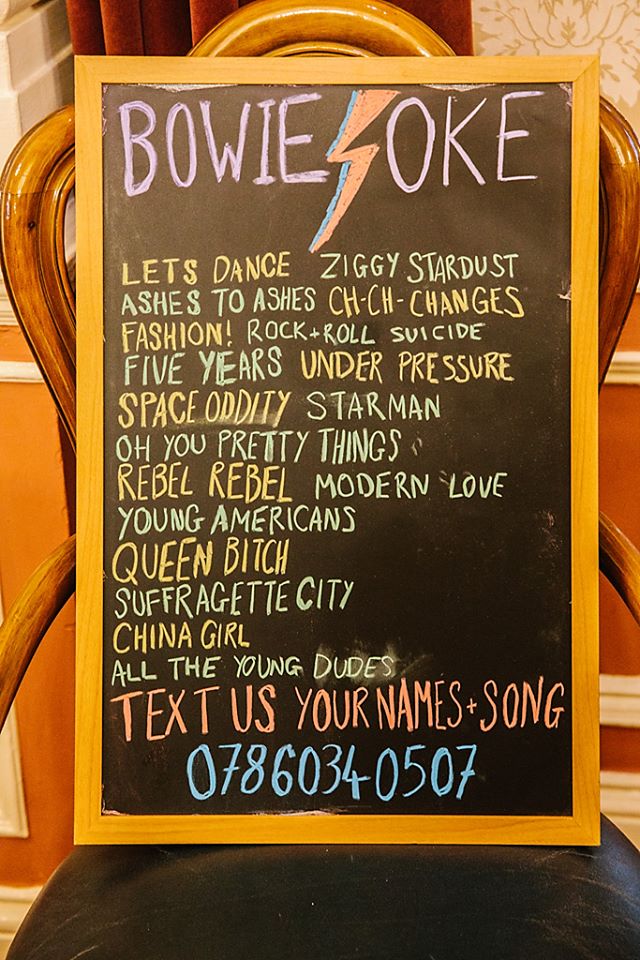 BOWIE OKE
LETS DANCE ZIGGY STARDUST
ASHES TO ASHES CH-CH-CHANGES
FASHION! ROCK+ROLL SUICIDE
FIVE YEARS UNDER PRESSURE
SPACE ODDITY STARMAN
OH YOU PRETTY THINGS
REBEL REBEL MODERN LOVE
YOUNG AMERICANS
QUEEN BITCH
SUFFRAGETTE CITY
CHINA GIRL
ALL THE YOUNG DUDES
TEXT US YOUR NAMES + SONG
07860340507